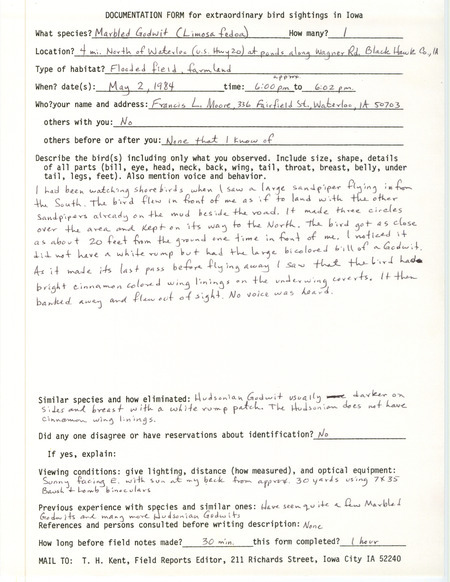 DOCUMENTATION FORM for extraordinary bird sightings in Iowa
What species? Marbled Godwit (Limosa fedoa) How many? 1
Location? 4 mi. North of Waterloo (U.S. Hwy 20) at ponds along Wagner Rd, Black Hawk Co., IA
Type of habitat? Flooded field, farmland
approx.
When? date(s): May 2, 1984 time: 6:00 pm to 6:02 pm.
Who? your name and address: Francis L. Moore, 336 Fairfield St., Waterloo, IA 50703
others with you: No
others before or after you: None that I know of
Describe the bird(s) including only what you observed. Include size, shape, details
of all parts (bill, eye, head, neck, back, wing, tail, throat, breast, belly, under
tail, legs, feet). Also mention voice and behavior.
I had been watching shorebirds when I saw a large sandpiper flying in from
the South. The bird flew in front of me as if to land with the other
sandpipers already on the mud beside the road. It made three circles
over the area and kept on its way to the North. The bird got as close
as about 20 feet from the ground one time in front of me. I noticed it
did not have a white rump but had the large bicolored bill of a Godwit.
As it made its last pass before flying away I saw that the bird had
bright cinnamon colored wing linings on the underwing coverts. It then
banked away and flew out of sight. No voice was heard.
Similar species and how eliminated: Hudsonian Godwit usually darker on
sides and breast with a white rump patch. The Hudsonian does not have
cinnamon wing linings.
Did any one disagree or have reservations about identification? No
If yes, explain:
Viewing conditions: give lighting, distance (how measured), and optical equipment:
Sunny facing E. with sun at my back from approx. 30 yards using 7x35
Baush & Lomb binoculars
Previous experience with species and similar ones: Have seen quite a few Marbled
Godwits and many more Hudsonian Godwits
References and persons consulted before writing description: None
How long before field notes made? 30 min. this form completed? 1 hour
MAIL TO: T. H. Kent, Field Reports Editor, 211 Richards Street, Iowa City IA 52240